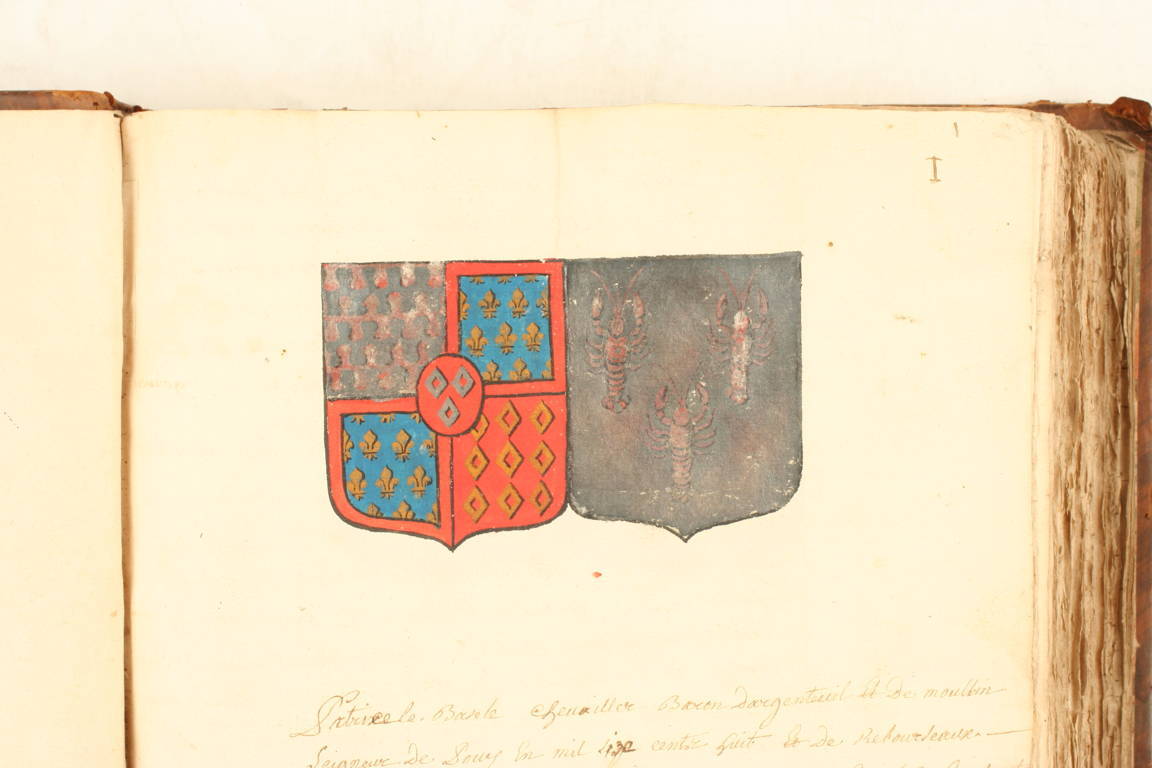 I
Patrice le Basele Cheuallier Baron Dargenteuil Et De moulbin
Seigneur de Pouy En mil 432 cents huit Et de Rebourseaux